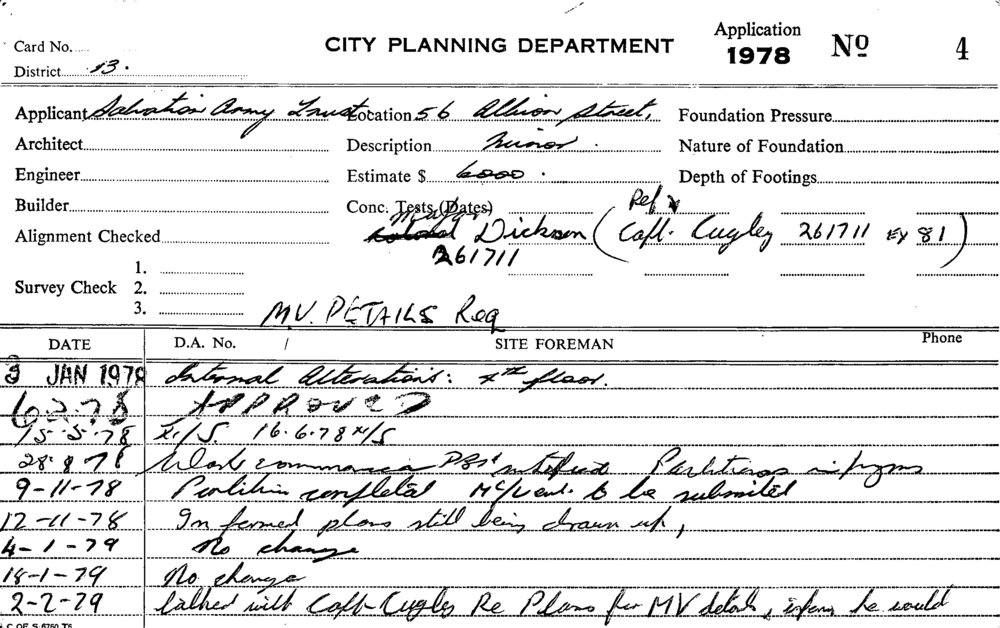 Application
Card No. CITY PLANNING DEPARTMENT 1978 Nº 4
District 13.
Applicant Salvation Army Trust Location 56 Albion Street, Foundation Pressure
Architect Description Minor. Nature of Foundation
Engineer Estimate $ 6000. Depth of Footings
Builder Conc. Tests (Dates)
Alignment Checked Dickson (Capt. Cugley 261711 Ex 81)
261711
1.
Survey Check 2.
3.
M.V. DETAILS Req
DATE D.A. No. / SITE FOREMAN Phone
3 JAN 1978 Internal Alterations: 4th floor.
6.2.78 APPROVED
15.5.78 16.6.78
28.8.78 Work Partitions in
9-11-78 Partition completed to be submitted
12-11-78 Informed plans still being drawn up,
4-1-79 No change
18-1-79 No change
2-2-79 talked with Capt Cugley Re Plans for MV details, he would
C OF S:6760 T6